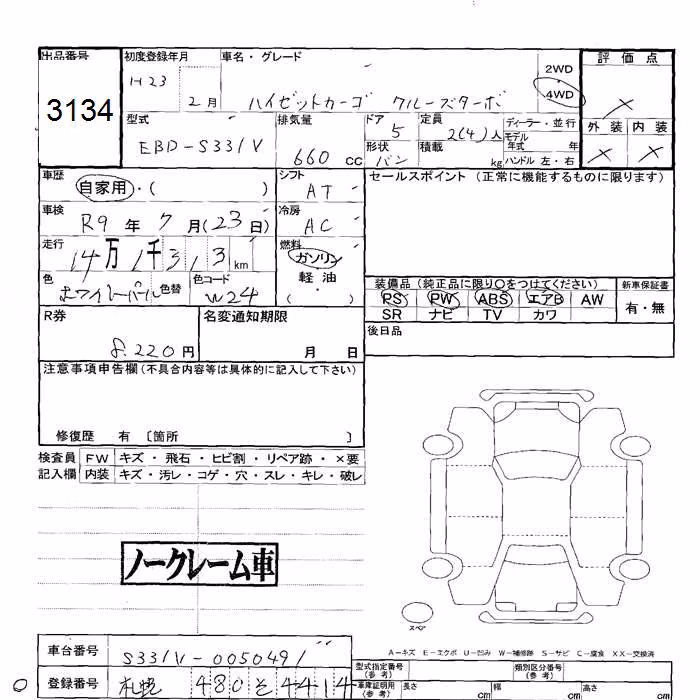 出品番号 初度登録年月 車名・グレード 評価点
3134 H23 2月 ハイゼットカーゴ クルーズターボ 2WD 4WD ×
型式 排気量 ドア 定員 ディーラー・並行 外装 内装
EBD-S331V 660 CC 5 2(4)人 モデル年式 年 × ×
形状 バン 積載 kg ハンドル 左・右
車歴 自家用・( ) シフト AT セールスポイント (正常に機能するものに限ります)
車検 R9年 7月(23日) 冷房 AC
走行 14万1千313km 燃料 ガソリン・軽油
色 ホワイトパール 色替 色コード W24
装備品 (純正品に限り○をつけてください) 新車保証書
PS PW ABS エアB AW 有・無
SR ナビ TV カワ
R券 8,220円 名変通知期限 月 日 後日品
注意事項申告欄(不具合内容等は具体的に記入して下さい)
修復歴 有 〔箇所 〕
検査員 FW キズ・飛石・ヒビ割・リペア跡・×要
記入欄 内装 キズ・汚レ・コゲ・穴・スレ・キレ・破レ
ノークレーム車
スペア
A－キズ E－エクボ U－凹み W－補修跡 S－サビ C－腐食 XX－交換済
車台番号 S331V-0050491
型式指定番号(参考) 類別区分番号(参考)
登録番号 札幌 480 そ 4414
車庫証明用(参考) 長さ cm 幅 cm 高さ cm